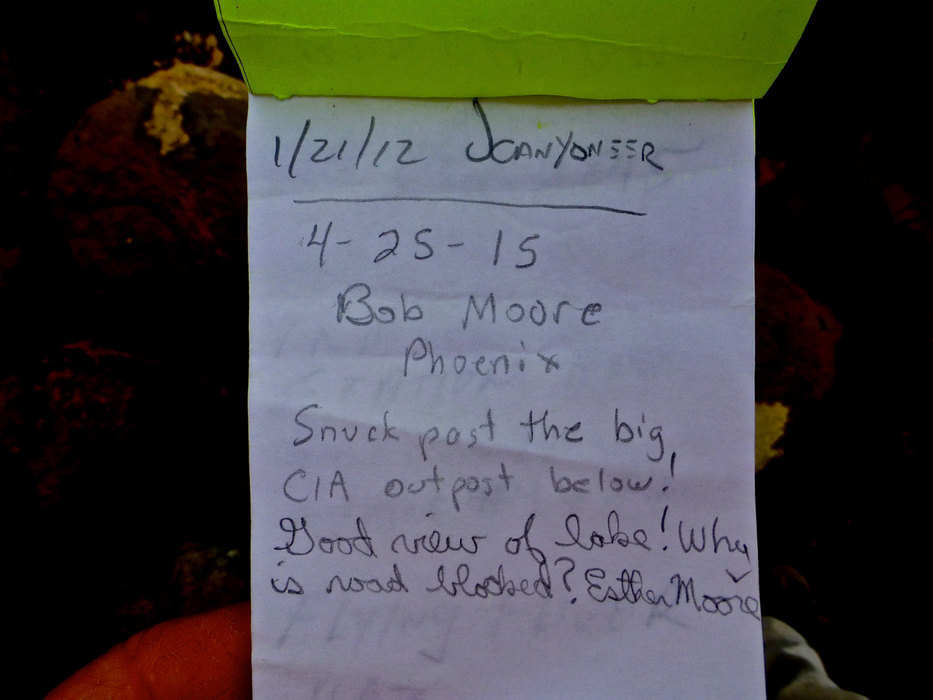 1/21/12 JCANYONEER
4-25-15
Bob Moore
Phoenix
Snuck past the big,
CIA outpost below!
Good view of lake! Why
is road blocked? Esther Moore